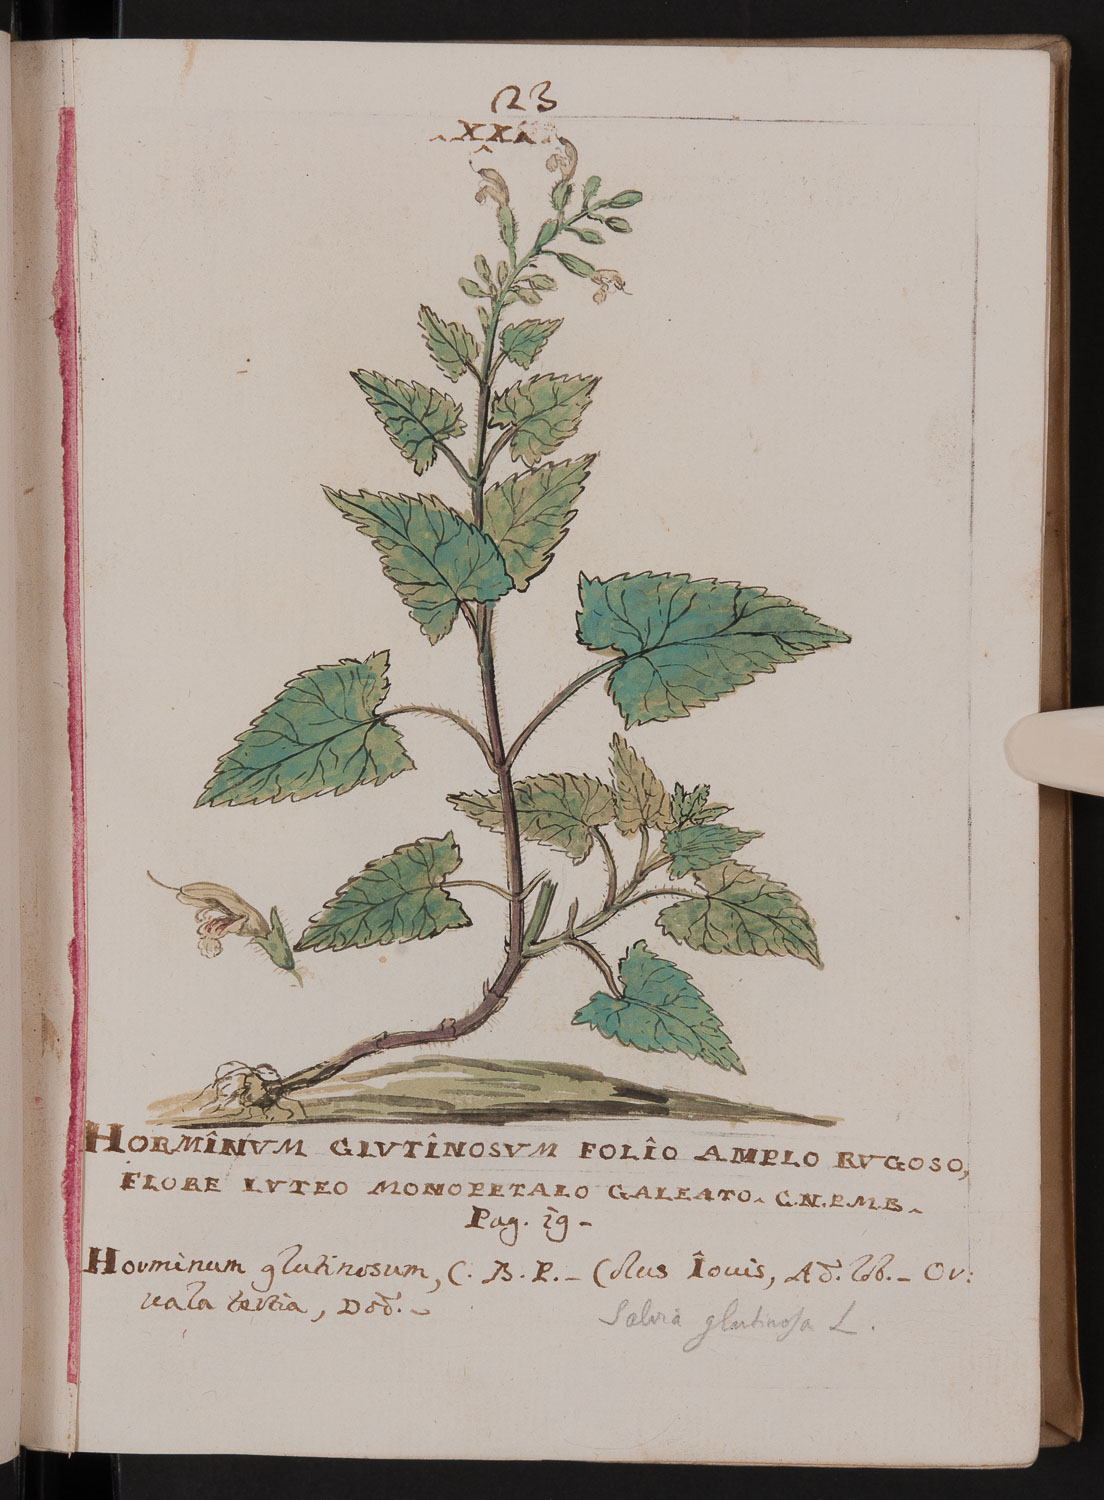 23
HORMÎNVM GLVTÎNOSVM FOLÎO AMPLO RVGOSO,
FLORE LVTEO MONOPETALO GALEATO. C.N.P.M.B.
Pag. 19 -
Horminum glutinosum, C. B. P. - Colus Îovis, Ad. lob. - Or:
vala tertia, Dod. -
Salvia glutinosa L.